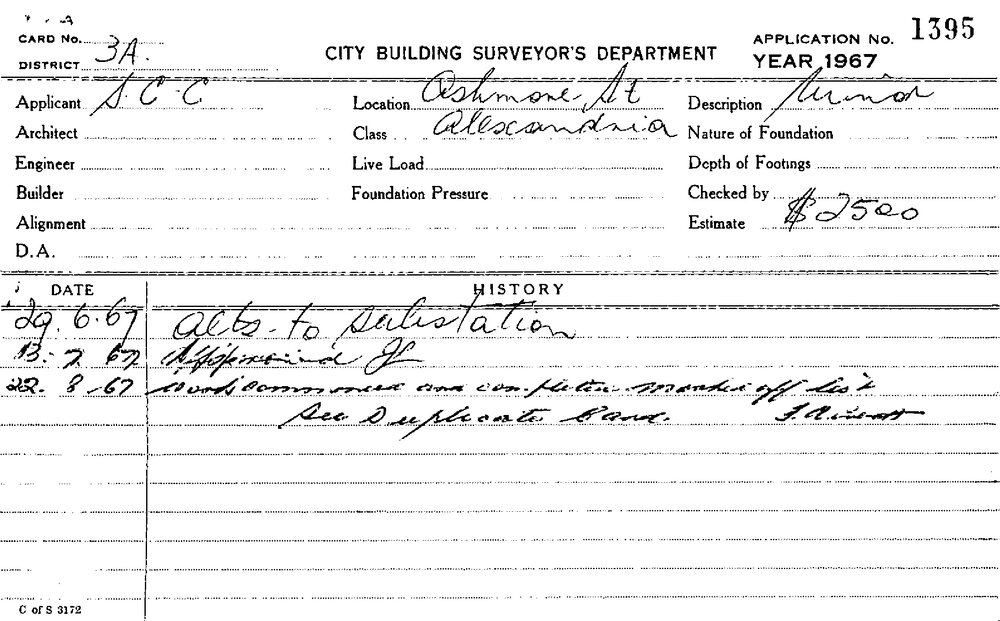 CARD No.
DISTRICT 3A.
CITY BUILDING SURVEYOR'S DEPARTMENT
APPLICATION No. 1395
YEAR 1967
Applicant S.C.C Location Ashmore St Description Minor
Architect Class Alexandria Nature of Foundation
Engineer Live Load Depth of Footings
Builder Foundation Pressure Checked by
Alignment Estimate $2500
D.A.
DATE HISTORY
29.6.67 Alts. to substation
13.7.67 Approved
22.8.67 work commenced and completed marked off list
See Duplicate Card.
C of S 3172